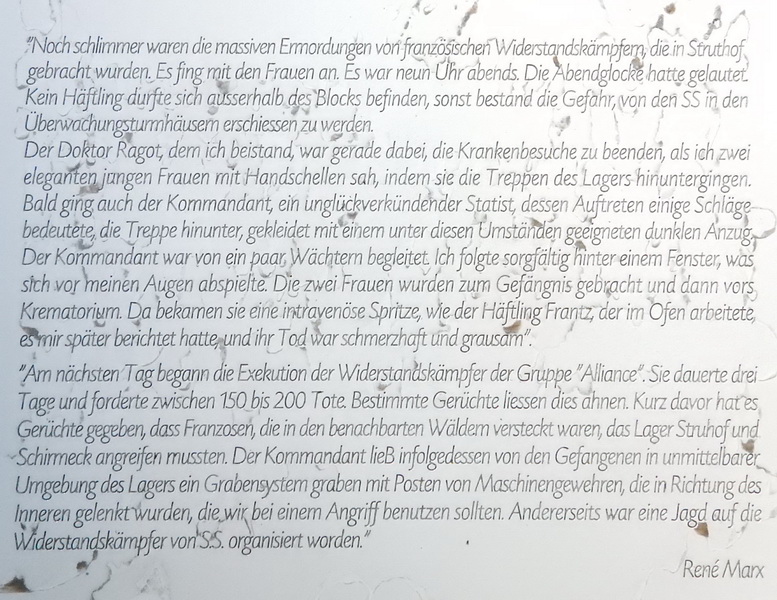 "Noch schlimmer waren die massiven Ermordungen von französischen Widerstandskämpfern, die in Struthof
gebracht wurden. Es fing mit den Frauen an. Es war neun Uhr abends. Die Abendglocke hatte gelautet.
Kein Häftling durfte sich ausserhalb des Blocks befinden, sonst bestand die Gefahr, von den SS in den
Überwachungsturmhäusern erschiessen zu werden.
Der Doktor Ragot, dem ich beistand, war gerade dabei, die Krankenbesuche zu beenden, als ich zwei
eleganten jungen Frauen mit Handschellen sah, indem sie die Treppen des Lagers hinuntergingen.
Bald ging auch der Kommandant, ein unglückverkündender Statist, dessen Auftreten einige Schläge
bedeutete, die Treppe hinunter, gekleidet mit einem unter diesen Umständen geeigneten dunklen Anzug.
Der Kommandant war von ein paar Wächtern begleitet. Ich folgte sorgfältig hinter einem Fenster, was
sich vor meinen Augen abspielte. Die zwei Frauen wurden zum Gefängnis gebracht und dann vors
Krematorium. Da bekamen sie eine intravenöse Spritze, wie der Häftling Frantz, der im Ofen arbeitete,
es mir später berichtet hatte, und ihr Tod war schmerzhaft und grausam".
"Am nächsten Tag begann die Exekution der Widerstandskämpfer der Gruppe "Alliance". Sie dauerte drei
Tage und forderte zwischen 150 bis 200 Tote. Bestimmte Gerüchte liessen dies ahnen. Kurz davor hat es
Gerüchte gegeben, dass Franzosen, die in den benachbarten Wäldern versteckt waren, das Lager Struhof und
Schirmeck angreifen mussten. Der Kommandant ließ infolgedessen von den Gefangenen in unmittelbarer
Umgebung des Lagers ein Grabensystem graben mit Posten von Maschinengewehren, die in Richtung des
Inneren gelenkt wurden, die wir bei einem Angriff benutzen sollten. Andererseits war eine Jagd auf die
Widerstandskämpfer von S.S. organisiert worden."
René Marx